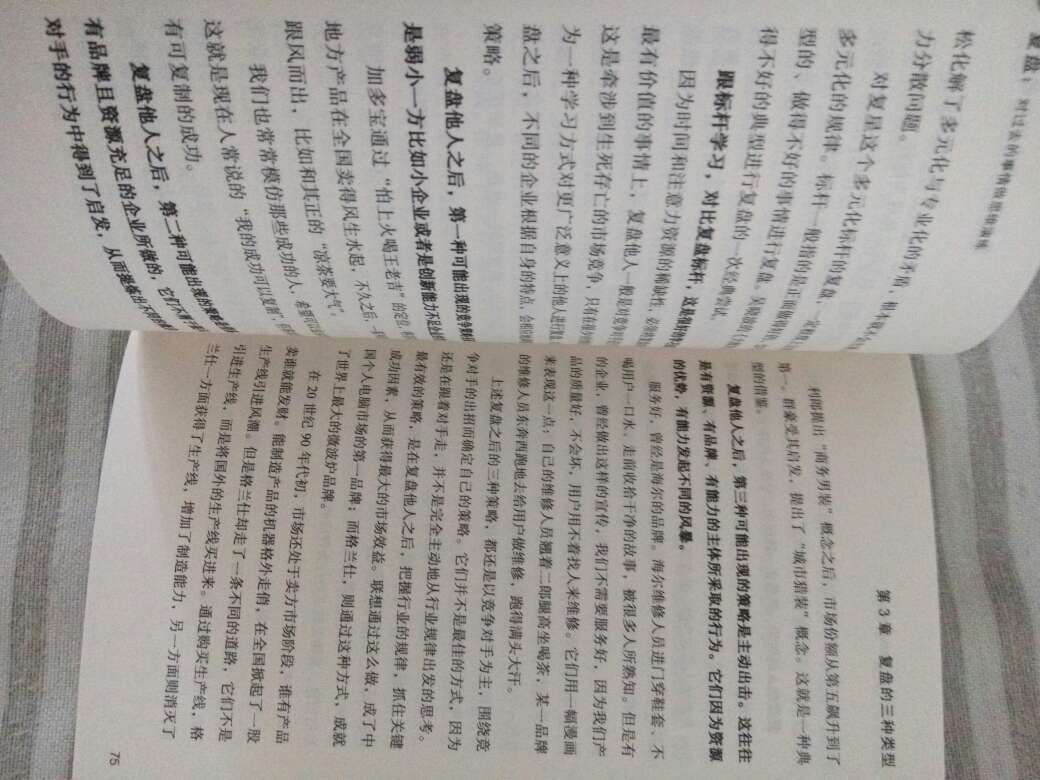 复盘：对过去的事情做思维演练
松化解了多元化与专业化的矛盾，根本
力分散问题。
对复星这个多元化标杆的复盘，
多元化的规律。标杆一般指的是正面做得
型的、做得不好的事情进行复盘。
得不好的典型进行复盘的一次经典尝试。
跟标杆学习，对比复盘标杆，这是
因为时间和注意力资源的稀缺性，
最有价值的事情上，复盘他人一般是对竞争
这是牵涉到生死存亡的市场竞争，只有在
为一种学习方式对更广泛意义上的他人进行复
盘之后，不同的企业根据自身的特点，会
策略。
复盘他人之后，第一种可能出现的竞争
是弱小一方比如小企业或者是创新能力不足
加多宝通过“怕上火喝王老吉”的定位，
地方产品在全国卖得风生水起，不久之后，
跟风而出，比如和其正的“凉茶要大气”，
我们也常常模仿那些成功的人，
这就是现在人常说的“我的成功可以复制”，
有可复制的成功。
复盘他人之后，第二种可能出现的策略
有品牌且资源充足的企业所做的，它们不
对手的行为中得到了启发，从而提炼出不同的
第3章 复盘的三种类型
利郎提出“商务男装”概念之后，市场份额从第五飙升到了
第一，群豪受其启发，提出了“城市猎装”概念。这就是一种典
型的借鉴。
复盘他人之后，第三种可能出现的策略是主动出击。这往往
是有资源、有品牌、有能力的主体所采取的行为。它们因为资源
的优势，有能力发起不同的风暴。
服务好，曾经是海尔的品牌。海尔维修人员进门穿鞋套、不
喝用户一口水、走前收拾干净的故事，被很多人所熟知。但是有
的企业，曾经做出这样的宣传，我们不需要服务好，因为我们产
品的质量好，不会坏，用户用不着找人来维修。它们用一幅漫画
来表现这一点：自己的维修人员翘着二郎腿高坐喝茶，某一品牌
的维修人员东奔西跑地去给用户做维修，跑得满头大汗。
上述复盘之后的三种策略，都还是以竞争对手为主，围绕竞
争对手的出招而确定自己的策略。它们并不是最佳的方式，因为
还是在跟着对手走，并不是完全主动地从行业规律出发的思考。
最有效的策略，是在复盘他人之后，把握行业的规律，抓住关键
成功因素，从而获得最大的市场效益。联想通过这么做，成了中
国个人电脑市场的第一品牌；而格兰仕，则通过这种方式，成就
了世界上最大的微波炉品牌。
在20世纪90年代初，市场还处于卖方市场阶段，谁有产品
卖谁就能发财。能制造产品的机器格外走俏，在全国掀起了一股
生产线引进风潮。但是格兰仕却走了一条不同的道路，它们不是
引进生产线，而是将国外的生产线买进来。通过购买生产线，格
兰仕一方面获得了生产线，增加了制造能力，另一方面则消灭了
75